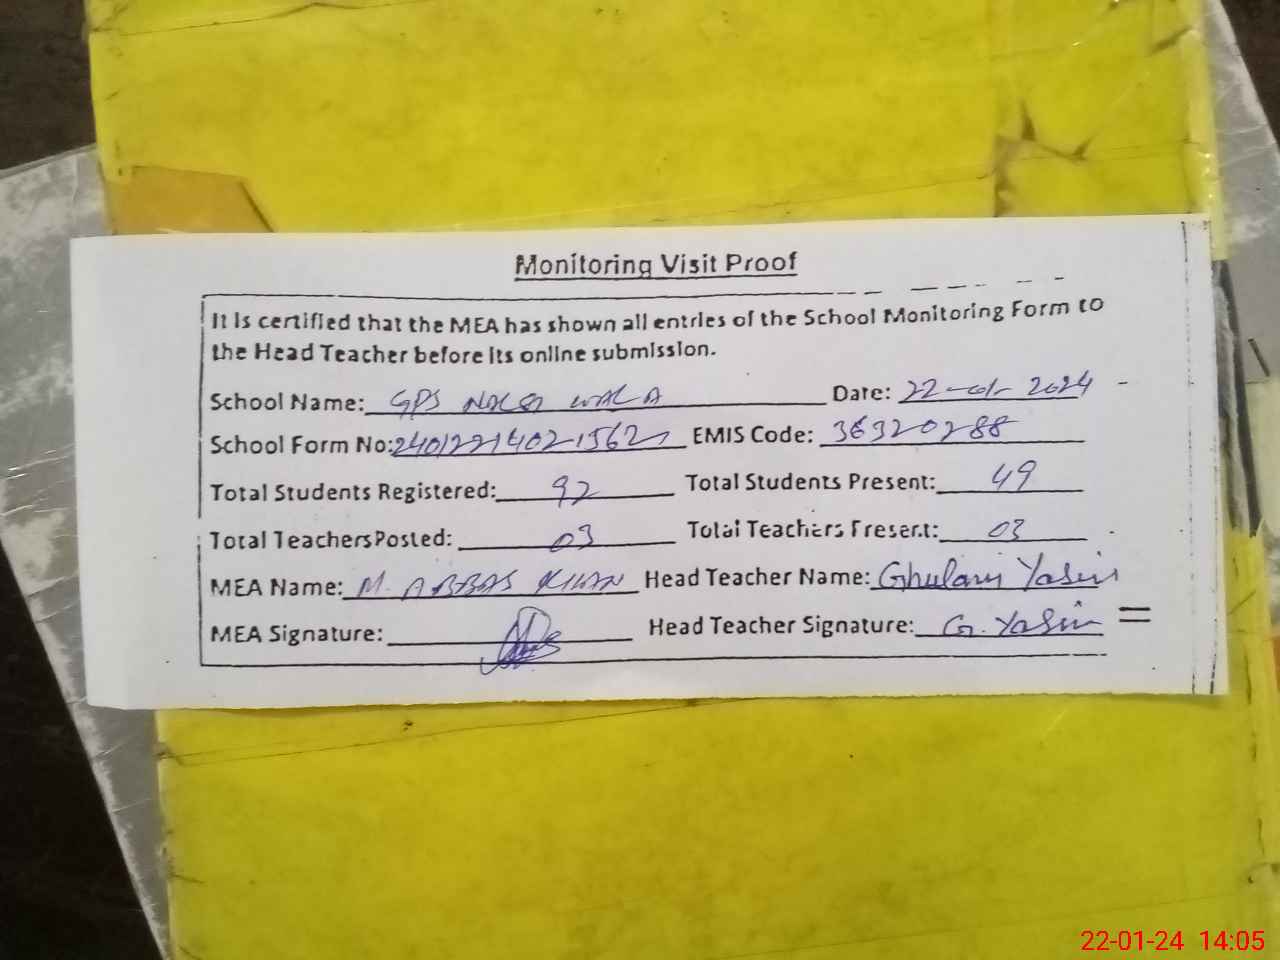 Monitoring Visit Proof
It is certified that the MEA has shown all entries of the School Monitoring Form to
the Head Teacher before its online submission.
School Name: GPS WALA Date: 22-01-2024
School Form No: EMIS Code: 36320288
Total Students Registered: 92 Total Students Present: 49
Total Teachers Posted: 03 Total Teachers Present: 03
MEA Name: M. ABBAS KHAN Head Teacher Name: Ghulam Yasin
MEA Signature: Head Teacher Signature: G. Yasin
22-01-24 14:05